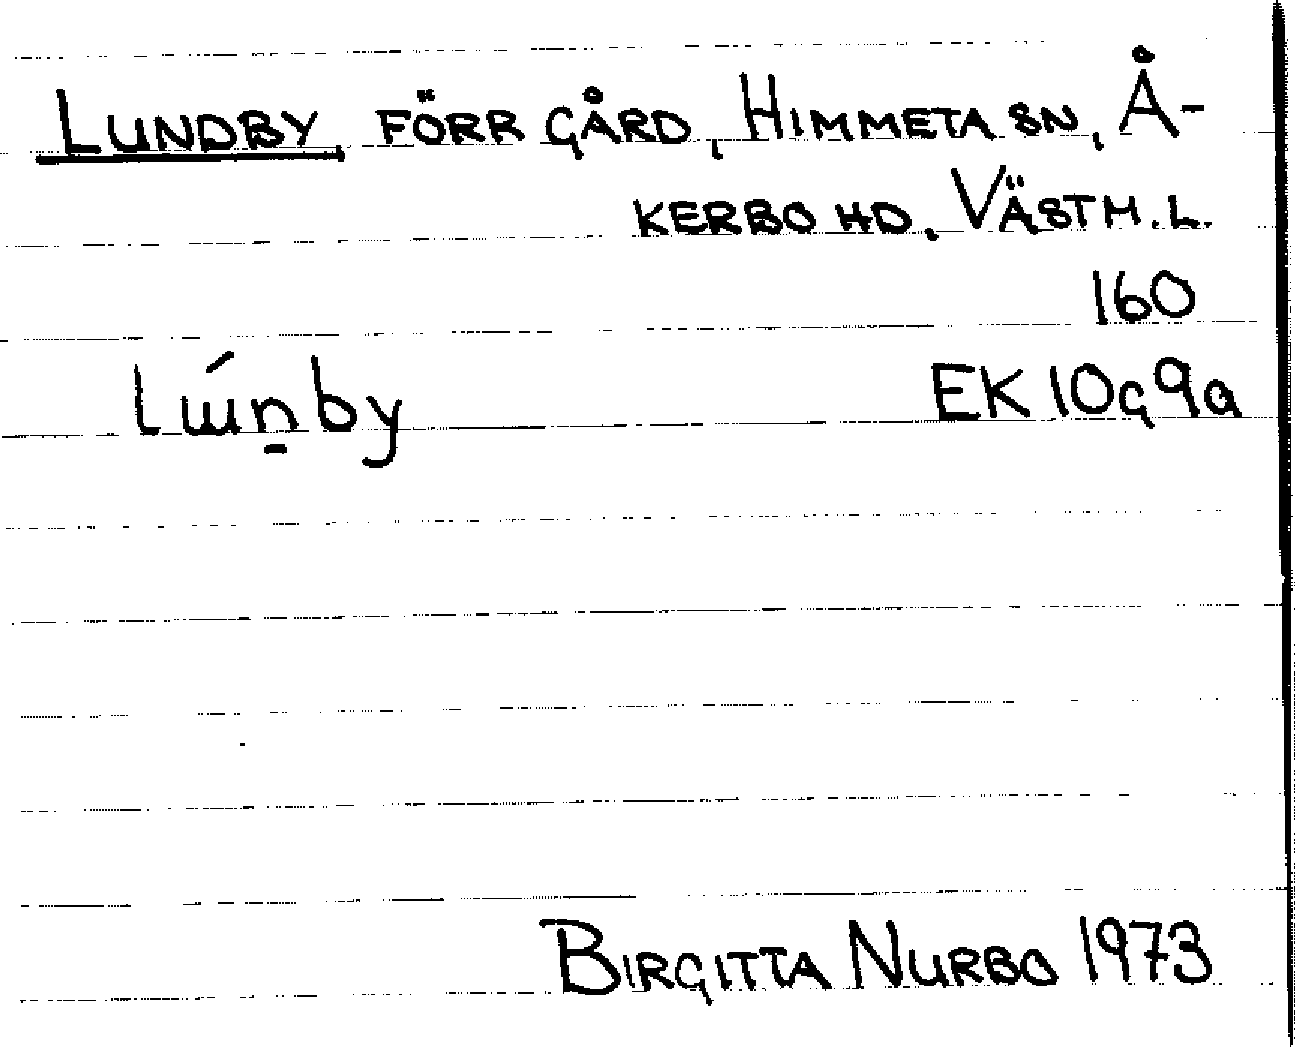 LUNDBY FÖRR GÅRD, HIMMETA SN, Å-
KERBO HD, VÄSTM. L.
160
lɯ́n̠by EK 10G9a
BIRGITTA NURBO 1973